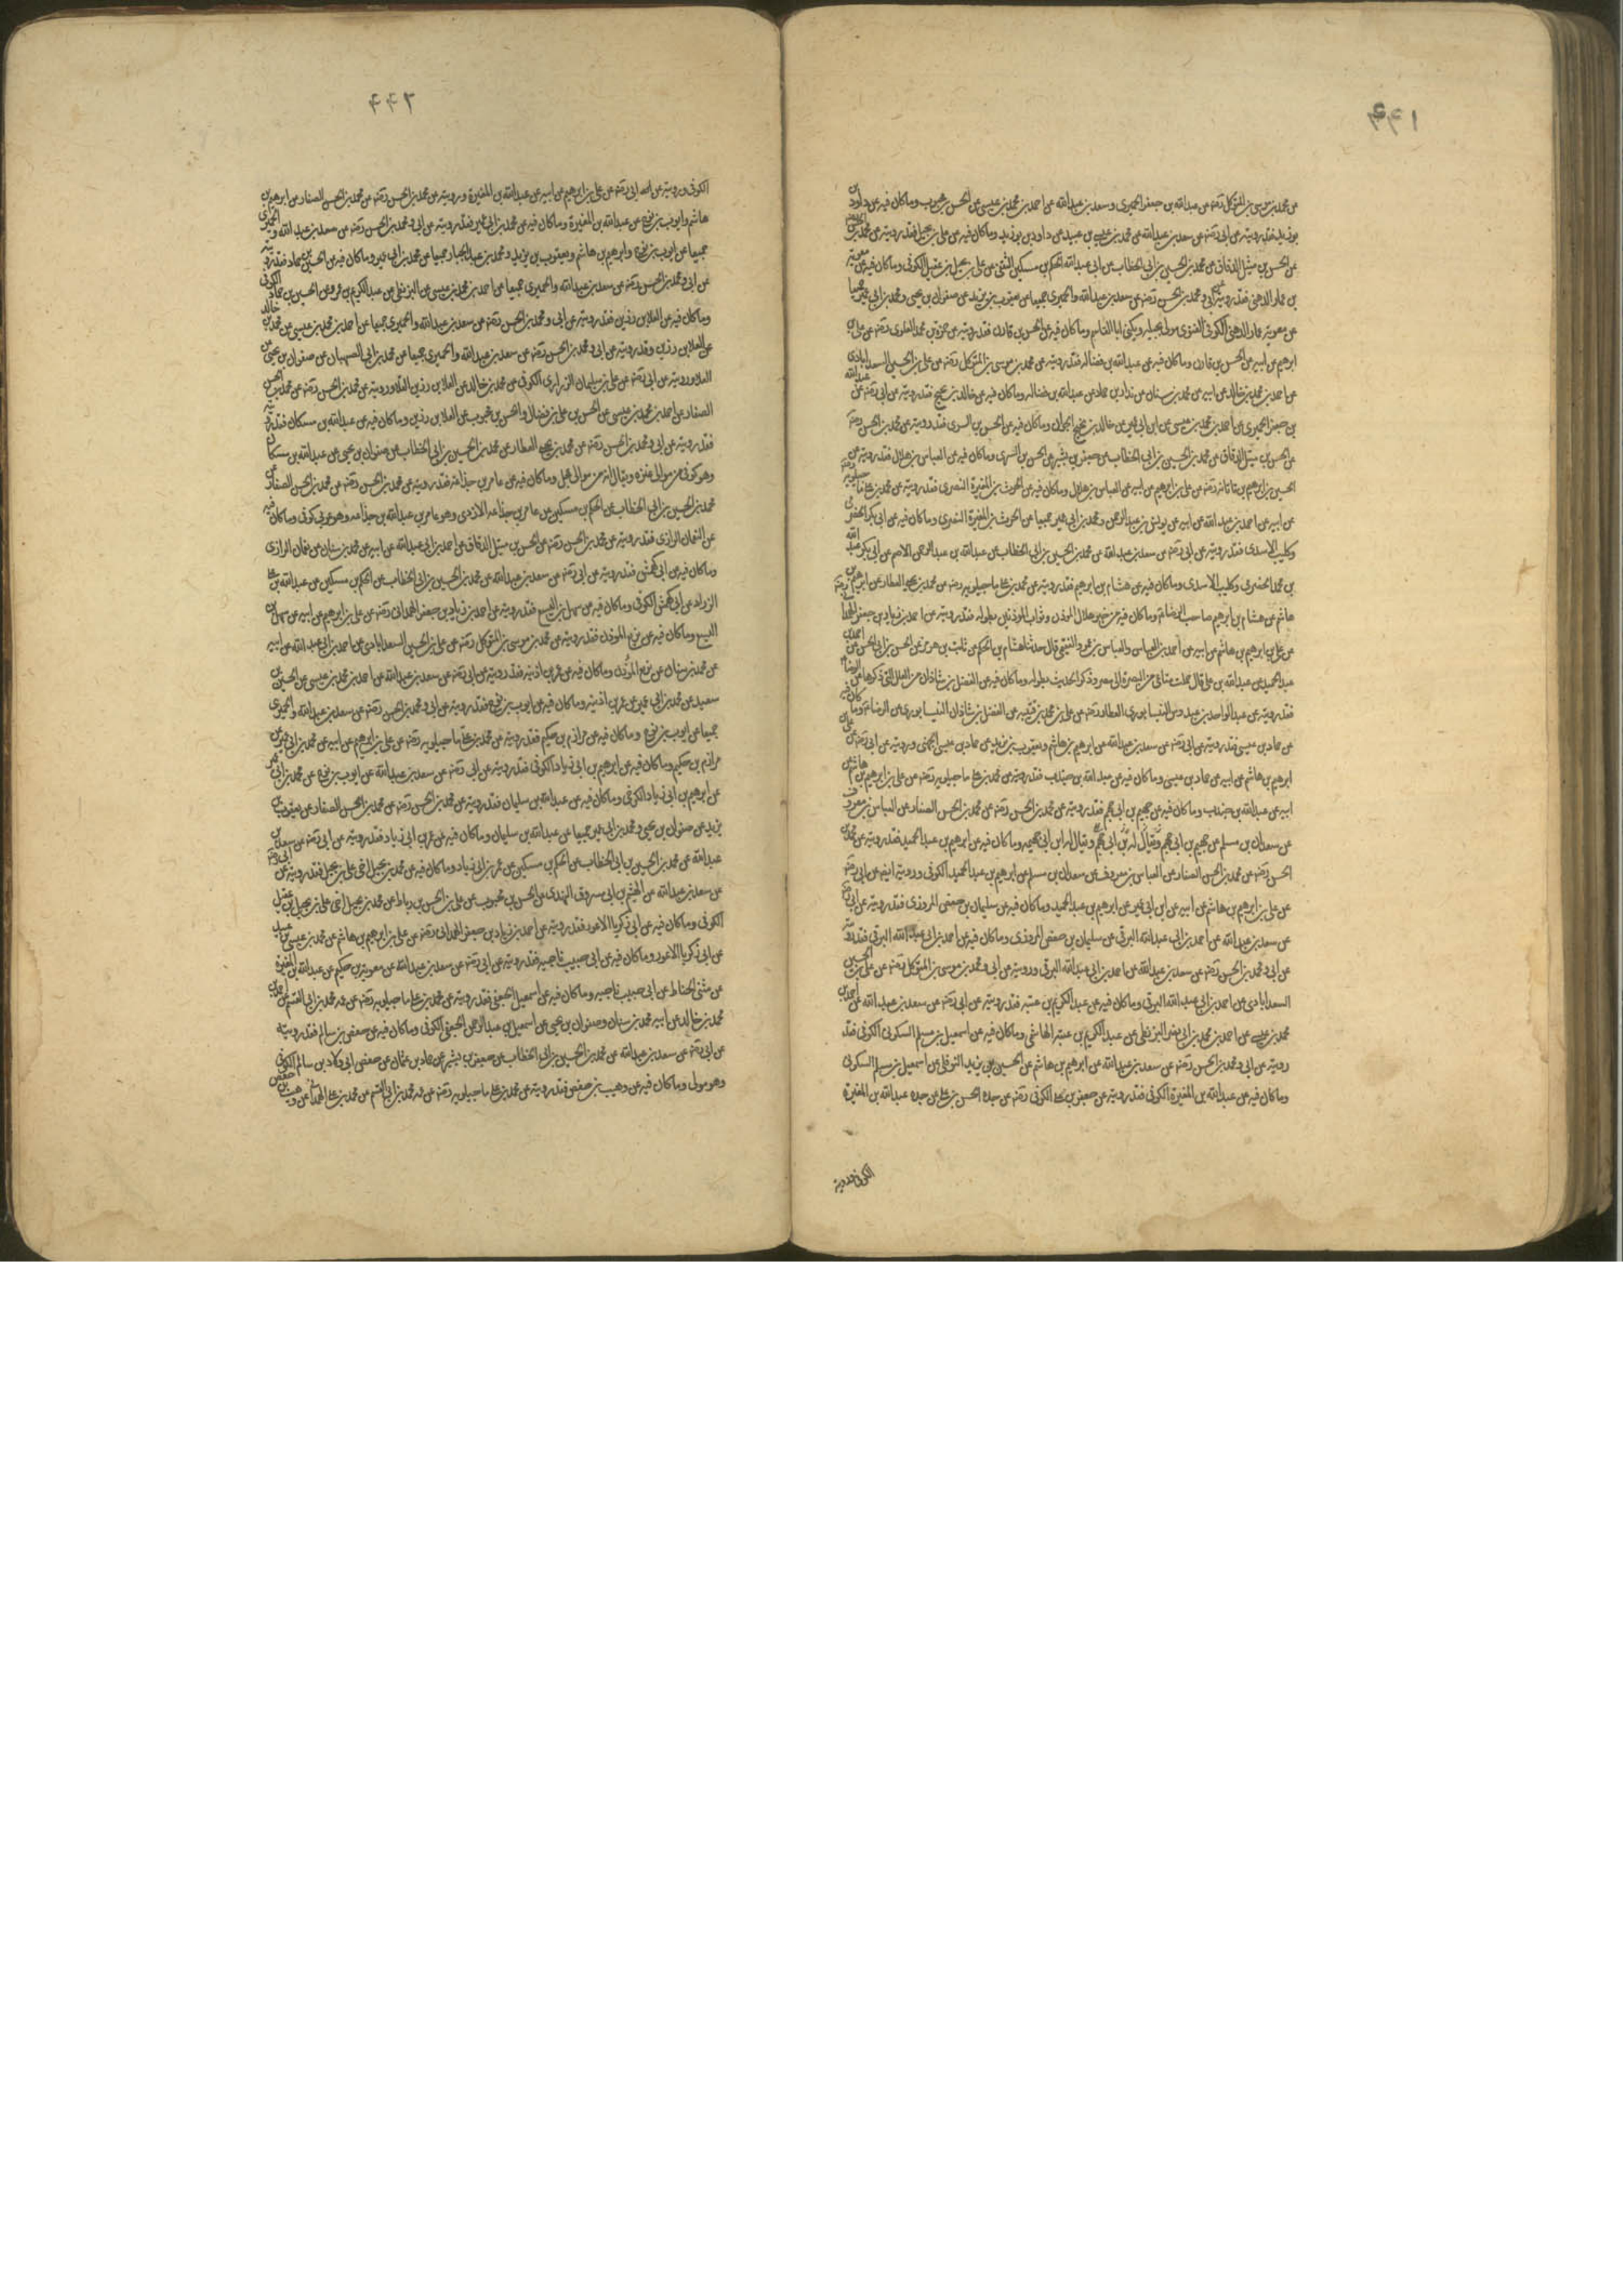 ٤٤١
عن محمد بن موسى بن المتوكل رضه عن عبدالله بن جعفر الحميرى وسعد بن عبدالله عن احمد بن محمد بن عيسى عن الحسن بن محبوب وما كان فيه عن داود
بن عمار الدهنى فقد رويته عن ابى ومحمد بن الحسن رضه عن سعد بن عبدالله والحميرى جميعا عن يعقوب بن يزيد عن صفوان بن يحيى ومحمد بن ابى عمير جميعا
ابرهيم عن ابيه عن الحسن بن قارن وما كان فيه عن عبدالله بن فضاله فقد رويته عن محمد بن موسى بن المتوكل رضه عن على بن الحسين السعدابادى
عن احمد بن محمد بن خالد عن ابيه عن محمد بن سنان عن بندار بن حماد عن عبدالله بن فضاله وما كان فيه عن خالد بن نجيح فقد رويته عن ابى رضه عن عبدالله
بن جعفر الحميرى عن احمد بن محمد بن عيسى عن ابن ابى عمير عن خالد بن نجيح الجوان وما كان فيه عن الحسن بن السرى فقد رويته عن محمد بن الحسن رضه
عن الحسن بن متيل الدقاق عن محمد بن الحسين بن ابى الخطاب عن جعفر بن بشير عن الحسن بن السرى وما كان فيه عن العباس بن هلال فقد رويته عن
الحسين بن ابرهيم بن ناتانه رضه عن على بن ابرهيم عن ابيه عن العباس بن هلال وما كان فيه عن الحرث بن المغيرة النصرى فقد رويته عن محمد بن على ماجيلويه
عن ابيه عن احمد بن ابى عبدالله عن ابيه عن يونس بن عبدالرحمن ومحمد بن ابى عمير جميعا عن الحرث بن المغيرة النصرى وما كان فيه عن ابى بكر الحضرمى
وكليب الاسدى فقد رويته عن ابى رضه عن سعد بن عبدالله عن محمد بن الحسين بن ابى الخطاب عن عبدالله بن عبدالرحمن الاصم عن ابى بكر عبدالله
بن محمد الحضرمى وكليب الاسدى وما كان فيه عن هشام بن ابرهيم فقد رويته عن محمد بن على ماجيلويه رضه عن محمد بن يحيى العطار عن ابرهيم بن
هاشم عن هشام بن ابرهيم صاحب الرضا ع وما كان فيه من خبر هلال الموذن وثواب الموذنين بطوله فقد رويته عن احمد بن زياد بن جعفر الهمدانى رضه
عن على بن ابرهيم بن هاشم عن ابيه عن احمد بن العباس والعباس بن عمرو الفقيمى قال حدثنا هشام بن الحكم عن ثابت بن هرمز عن الحسن بن ابى الحسن عن احمد بن
عبدالحميد عن عبدالله بن على قال حملت متاعى من البصرة الى مصر وذكر الحديث بطوله وما كان فيه عن الفضل بن شاذان من العلل التى ذكرها عن الرضا ع
فقد رويته عن عبدالواحد بن عبدوس النيسابورى العطار رضه عن على بن محمد بن قتيبه عن الفضل بن شاذان النيسابورى عن الرضا ع وما كان فيه
عن حماد بن عيسى فقد رويته عن ابى رضه عن سعد بن عبدالله عن ابرهيم بن هاشم ويعقوب بن يزيد عن حماد بن عيسى الجهنى ورويته عن ابى رضه عن على بن
ابرهيم بن هاشم عن ابيه عن حماد بن عيسى وما كان فيه عن عبدالله بن جندب فقد رويته عن محمد بن على ماجيلويه رضه عن على بن ابرهيم بن هاشم عن
ابيه عن عبدالله بن جندب وما كان فيه عن جهيم بن ابى جهم فقد رويته عن محمد بن الحسن رضه عن محمد بن الحسن الصفار عن العباس بن معروف
عن سعدان بن مسلم عن جهيم بن ابى جهم ويقال له بن ابى جهم ويقال له ابن ابى جهيمه وما كان فيه عن ابرهيم بن عبدالحميد فقد رويته عن محمد بن
الحسن رضه عن محمد بن الحسن الصفار عن العباس بن معروف عن سعدان بن مسلم عن ابرهيم بن عبدالحميد الكوفى ورويته ايضا عن ابى رضه
عن على بن ابرهيم بن هاشم عن ابيه عن ابن ابى عمير عن ابرهيم بن عبدالحميد وما كان فيه عن سليمان بن حفص المروزى فقد رويته عن ابى رضه
عن سعد بن عبدالله عن احمد بن ابى عبدالله البرقى عن سليمان بن حفص المروزى وما كان فيه عن احمد بن ابى عبدالله البرقى فقد رويته
عن ابى ومحمد بن الحسن رضه عن سعد بن عبدالله عن احمد بن ابى عبدالله البرقى ورويته عن ابى ومحمد بن موسى بن المتوكل رضه عن على بن الحسين
السعدابادى عن احمد بن ابى عبدالله البرقى وما كان فيه عن عبدالكريم بن عتبه فقد رويته عن ابى رضه عن سعد بن عبدالله عن احمد بن
محمد بن عيسى عن احمد بن محمد بن ابى نصر البزنطى عن عبدالكريم بن عتبه الهاشمى وما كان فيه عن اسمعيل بن مسلم السكونى الكوفى فقد
رويته عن ابى ومحمد بن الحسن رضه عن سعد بن عبدالله عن ابرهيم بن هاشم عن الحسين بن يزيد النوفلى عن اسمعيل بن مسلم السكونى
وما كان فيه عن عبدالله بن المغيرة الكوفى فقد رويته عن جعفر بن على الكوفى رضه عن جده الحسن بن على عن جده عبدالله بن المغيرة
الكوفى ورويته
٤٤٢
الكوفى ورويته عن ابى رضه عن على بن ابرهيم عن ابيه عن عبدالله بن المغيرة ورويته عن محمد بن الحسن رضه عن محمد بن الحسن الصفار عن ابرهيم بن
هاشم وايوب بن نوح عن عبدالله بن المغيرة وما كان فيه عن محمد بن ابى عمير فقد رويته عن ابى ومحمد بن الحسن رضه عن سعد بن عبدالله والحميرى
جميعا عن ايوب بن نوح وابرهيم بن هاشم ويعقوب بن يزيد ومحمد بن عبدالجبار جميعا عن محمد بن ابى عمير وما كان فيه عن الحسين بن حماد فقد رويته
عن ابى ومحمد بن الحسن رضه عن سعد بن عبدالله والحميرى جميعا عن احمد بن محمد بن عيسى عن البزنطى عن عبدالكريم بن عمرو عن الحسين بن حماد الكوفى
وما كان فيه عن العلا بن رزين فقد رويته عن ابى ومحمد بن الحسن رضه عن سعد بن عبدالله والحميرى جميعا عن احمد بن محمد بن عيسى عن محمد بن خالد
عن العلا بن رزين وقد رويته عن ابى ومحمد بن الحسن رضه عن سعد بن عبدالله والحميرى جميعا عن محمد بن ابى الصهبان عن صفوان بن يحيى عن
العلا ورويته عن ابى رضه عن على بن سليمان الزرارى الكوفى عن محمد بن خالد عن العلا بن رزين القلا ورويته عن محمد بن الحسن رضه عن محمد بن الحسن
الصفار عن احمد بن محمد بن عيسى عن الحسن بن على بن فضال والحسن بن محبوب عن العلا بن رزين وما كان فيه عن عبدالله بن مسكان فقد رويته
فقد رويته عن ابى ومحمد بن الحسن رضه عن محمد بن يحيى العطار عن محمد بن الحسين بن ابى الخطاب عن صفوان بن يحيى عن عبدالله بن مسكان
وهو كوفى من موالى عنزه ويقال انه من موالى عجل وما كان فيه عن عامر بن جذاعه فقد رويته عن محمد بن الحسن رضه عن محمد بن الحسن الصفار عن
محمد بن الحسين بن ابى الخطاب عن الحكم بن مسكين عن عامر بن جذاعه الازدى وهو عامر بن عبدالله بن جذاعه وهو عربى كوفى وما كان فيه
عن النعمان الرازى فقد رويته عن محمد بن الحسن رضه عن الحسن بن متيل الدقاق عن احمد بن ابى عبدالله عن ابيه عن محمد بن سنان عن نعمان الرازى
وما كان فيه عن ابى كهمش فقد رويته عن ابى رضه عن سعد بن عبدالله عن محمد بن الحسين بن ابى الخطاب عن الحكم بن مسكين عن عبدالله بن على
الزراد عن ابى كهمش الكوفى وما كان فيه عن سهل بن اليسع فقد رويته عن احمد بن زياد بن جعفر الهمدانى رضه عن على بن ابرهيم عن ابيه عن سهل بن
اليسع وما كان فيه عن بزيع الموذن فقد رويته عن محمد بن موسى بن المتوكل رضه عن على بن الحسين السعدابادى عن احمد بن ابى عبدالله عن ابيه
عن محمد بن سنان عن بزيع المؤذن وما كان فيه عن عمر بن اذينه فقد رويته عن ابى رضه عن سعد بن عبدالله عن احمد بن محمد بن عيسى عن الحسين بن
سعيد عن محمد بن ابى عمير عن عمر بن اذينه وما كان فيه عن ايوب بن نوح فقد رويته عن ابى ومحمد بن الحسن رضه عن سعد بن عبدالله والحميرى
جميعا عن ايوب بن نوح وما كان فيه عن مرازم بن حكيم فقد رويته عن محمد بن على ماجيلويه رضه عن على بن ابرهيم عن ابيه عن محمد بن ابى عمير عن
مرازم بن حكيم وما كان فيه عن ابرهيم بن ابى زياد الكوفى فقد رويته عن ابى رضه عن سعد بن عبدالله عن ايوب بن نوح عن محمد بن ابى عمير
عن ابرهيم بن ابى زياد الكوفى وما كان فيه عن عبدالله بن سليمان فقد رويته عن محمد بن الحسن رضه عن محمد بن الحسن الصفار عن يعقوب بن
يزيد عن صفوان بن يحيى ومحمد بن ابى عمير جميعا عن عبدالله بن سليمان وما كان فيه عن عمر بن ابى زياد فقد رويته عن ابى رضه عن سعد بن
عبدالله عن محمد بن الحسين بن ابى الخطاب عن الحكم بن مسكين عن عمر بن ابى زياد وما كان فيه عن محمد بن بجيل اخى على بن بجيل فقد رويته عن ابى رضه
عن سعد بن عبدالله عن الهيثم بن ابى مسروق النهدى عن الحسن بن محبوب عن على بن الحسن بن رباط عن محمد بن بجيل اخى على بن بجيل بن عقيل
الكوفى وما كان فيه عن ابى زكريا الاعور فقد رويته عن احمد بن زياد بن جعفر الهمدانى رضه عن على بن ابرهيم بن هاشم عن محمد بن عيسى بن عبيد
عن ابى زكريا الاعور وما كان فيه عن ابى حبيب ناجيه فقد رويته عن ابى رضه عن سعد بن عبدالله عن معوية بن حكيم عن عبدالله بن المغيرة
عن مثنى الحناط عن ابى حبيب ناجيه وما كان فيه عن اسمعيل الجعفى فقد رويته عن محمد بن على ماجيلويه رضه عن عمه محمد بن ابى القسم عن احمد بن
محمد بن خالد عن ابيه محمد بن سنان وصفوان بن يحيى عن اسمعيل بن عبدالرحمن الجعفى الكوفى وما كان فيه عن حفص بن سالم فقد رويته
عن ابى رضه عن سعد بن عبدالله عن محمد بن الحسين بن ابى الخطاب عن جعفر بن بشير عن حماد بن عثمان عن حفص ابى ولاد بن سالم الكوفى
وهو مولى وما كان فيه عن وهيب بن حفص فقد رويته عن محمد بن على ماجيلويه رضه عن عمه محمد بن ابى القسم عن محمد بن على الهمدانى عن وهيب بن حفص